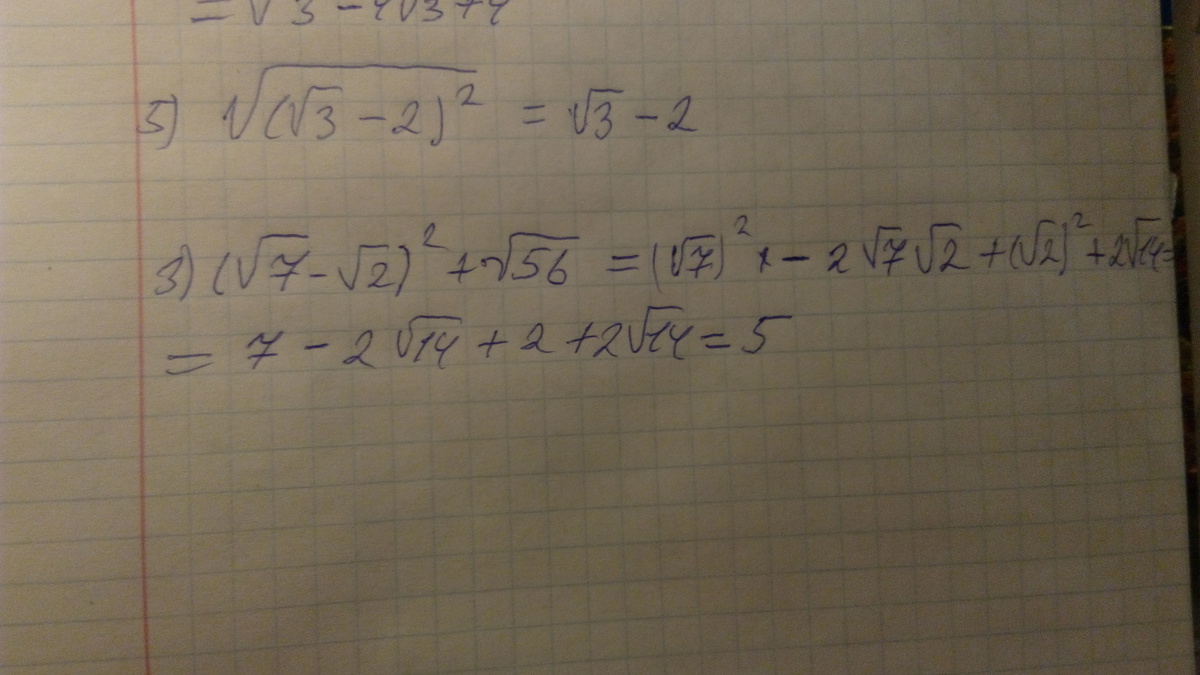 = √3 - 4√3 + 4
5) √(√3 - 2)² = √3 - 2
3) (√7 - √2)² + √56 = (√7)² × - 2√7√2 + (√2)² + 2√14 =
= 7 - 2√14 + 2 + 2√14 = 5